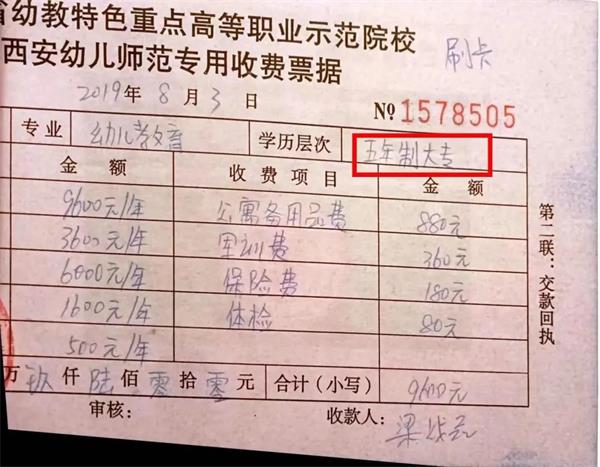 省幼教特色重点高等职业示范院校
西安幼儿师范专用收费票据
刷卡
2019年 8 月 3 日
№ 1578505
专业 幼儿教育 学历层次 五年制大专
金额 收费项目 金额
9600元/年 公寓备用品费 880元
3600元/年 军训费 360元
6000元/年 保险费 180元
1600元/年 体检 80元
500元/年
万 玖 仟 陆 佰 零 拾 零 元 合计（小写） 9600元
审核： 收款人：
第二联：交款回执